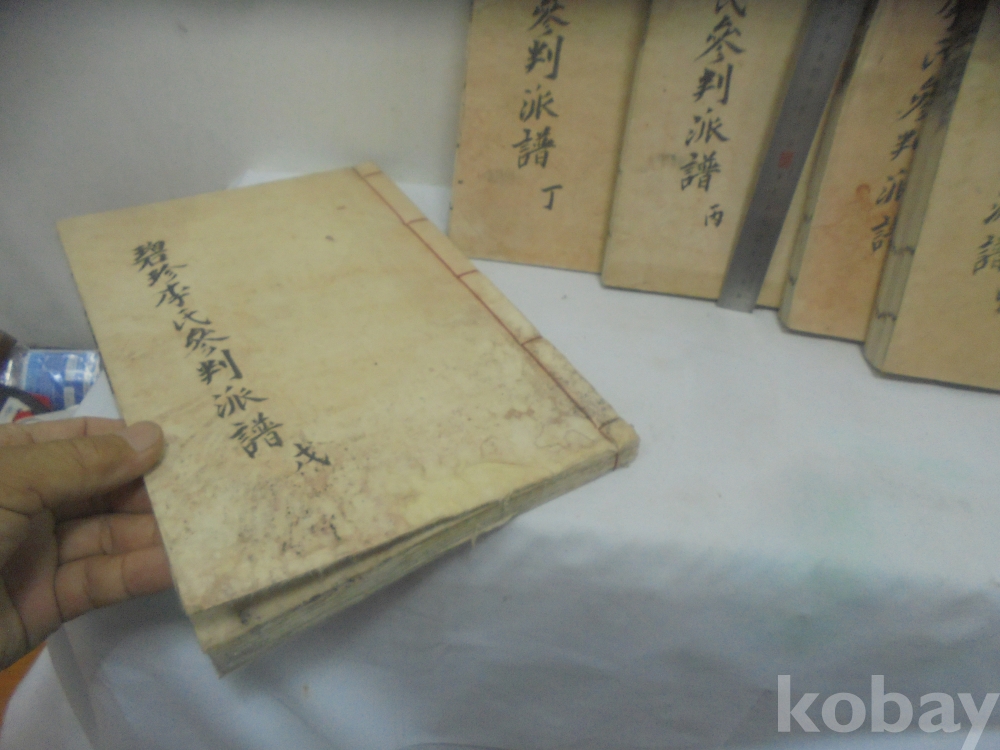 碧珍李氏參判派譜 戊
參判派譜 丁
氏參判派譜 丙
氏參判派譜
派譜
kobay